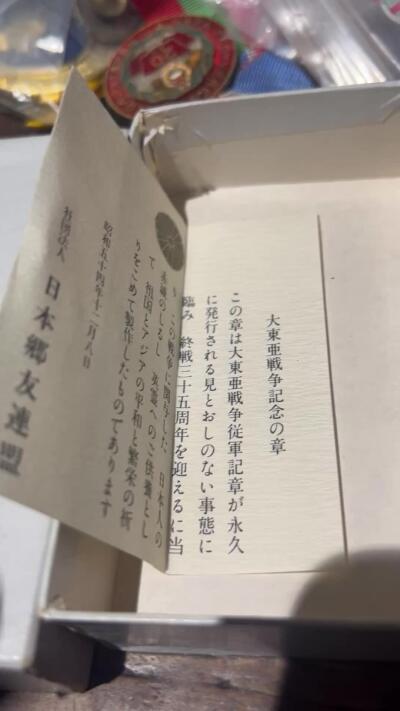 大東亜戦争記念の章
この章は大東亜戦争従軍記章が永久
に発行される見とおしのない事態に
臨み 終戦三十五周年を迎えるに当
り この戦争に関与した 日本人の
のしるし 英霊へのご供養とし
て 祖国とアジアの平和と繁栄の祈
りをこめて製作したものであります
昭和五十四年十二月八日
社団法人 日本郷友連盟